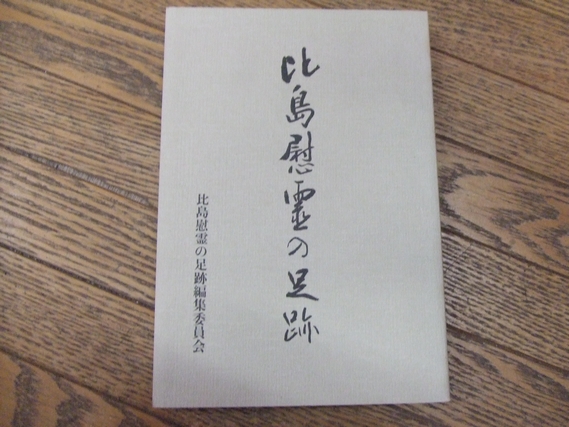 比島慰霊の足跡
比島慰霊の足跡編集委員会